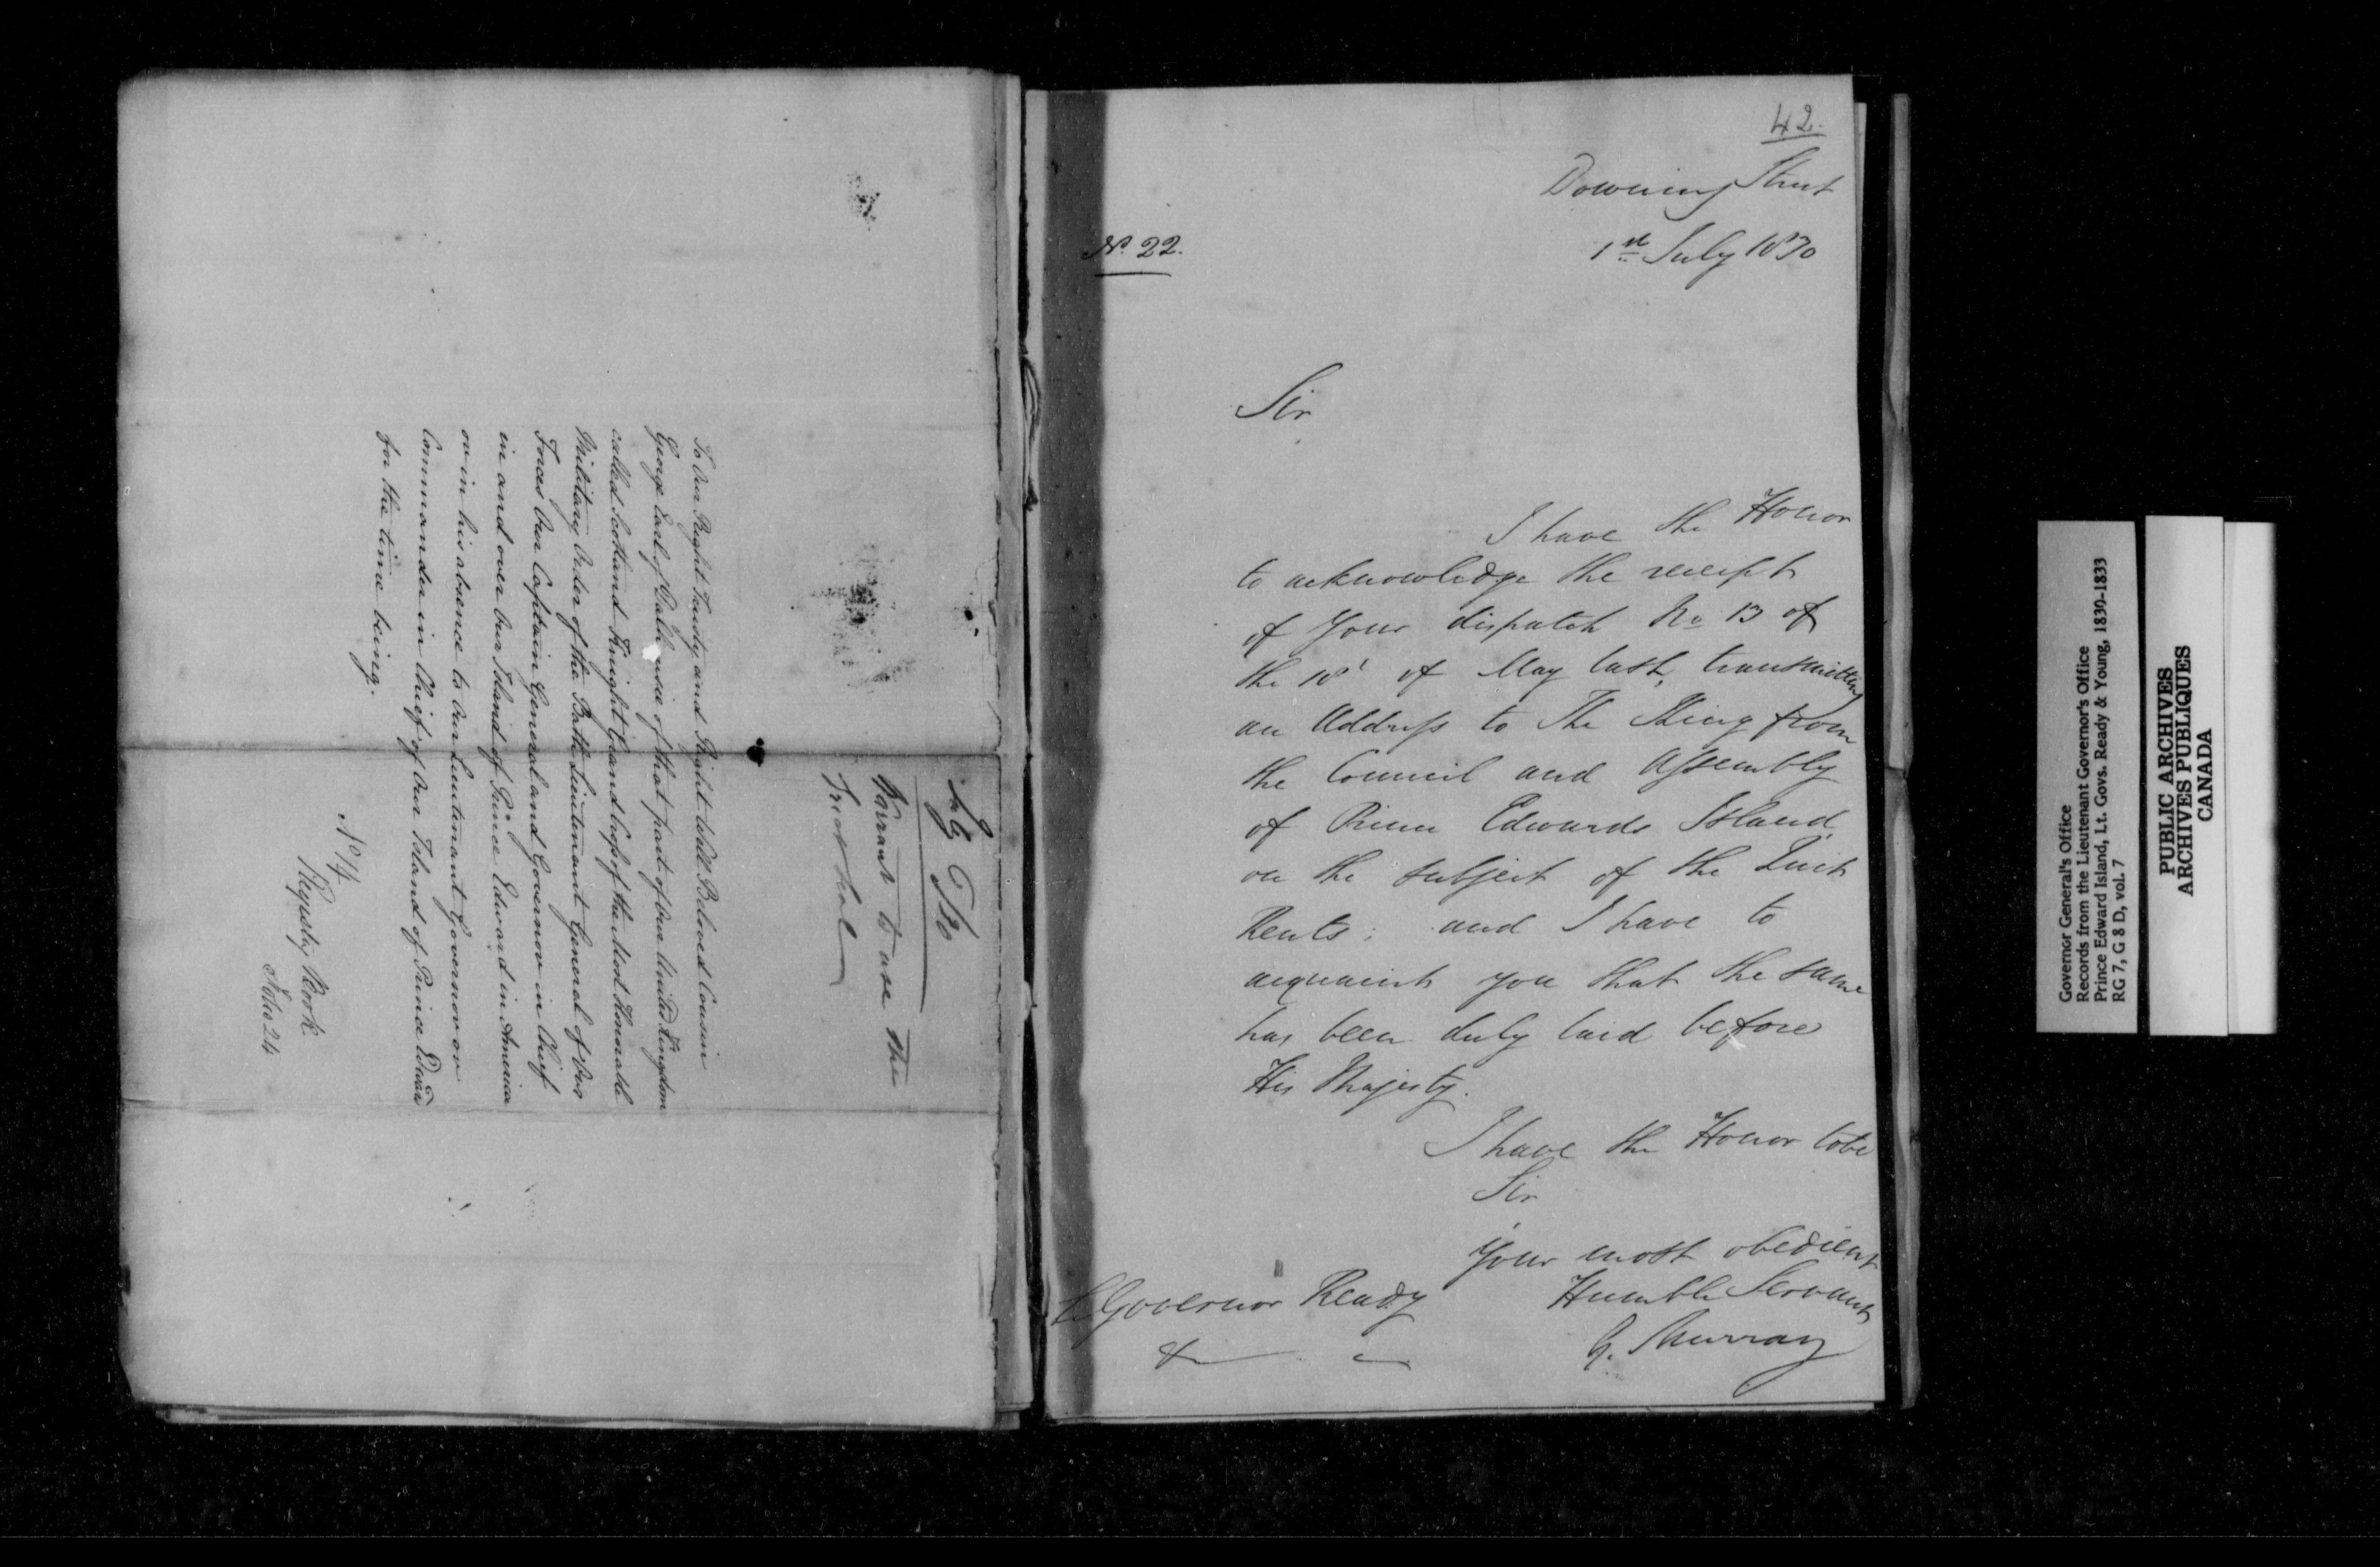 July 1830
Warrant to use the
Old Seal
To Our Right Trusty and Right Well Beloved Cousin
George Earl of Dalhousie of that part of Our United Kingdom
called Scotland Knight Grand Cross of the Most Honorable
Military Order of the Bath Lieutenant General of Our
Forces Our Captain General and Governor in Chief
in and over Our Island of Prince Edward in America
or in his absence to Our Lieutenant Governor or
Commander in Chief of Our Island of Prince Edward
for the time being.
Registry Book
Folio 24
42.
Downing Street
1st July 1830
No. 22.
Sir
I have the Honor
to acknowledge the receipt
of Your dispatch No 13 of
the 18t of May last, transmitting
an Address to The King from
the Council and Assembly
of Prince Edwards Island,
on the subject of the Quit
Rents; and I have to
acquaint you that the same
has been duly laid before
His Majesty.
I have the Honor to be
Sir
Your most obedient
Humble Servant
G. Murray
Lt Governor Ready
&c
Governor General's Office
Records from the Lieutenant Governor's Office
Prince Edward Island, Lt. Govs. Ready & Young, 1830-1833
RG 7, G 8 D, vol. 7
PUBLIC ARCHIVES
ARCHIVES PUBLIQUES
CANADA